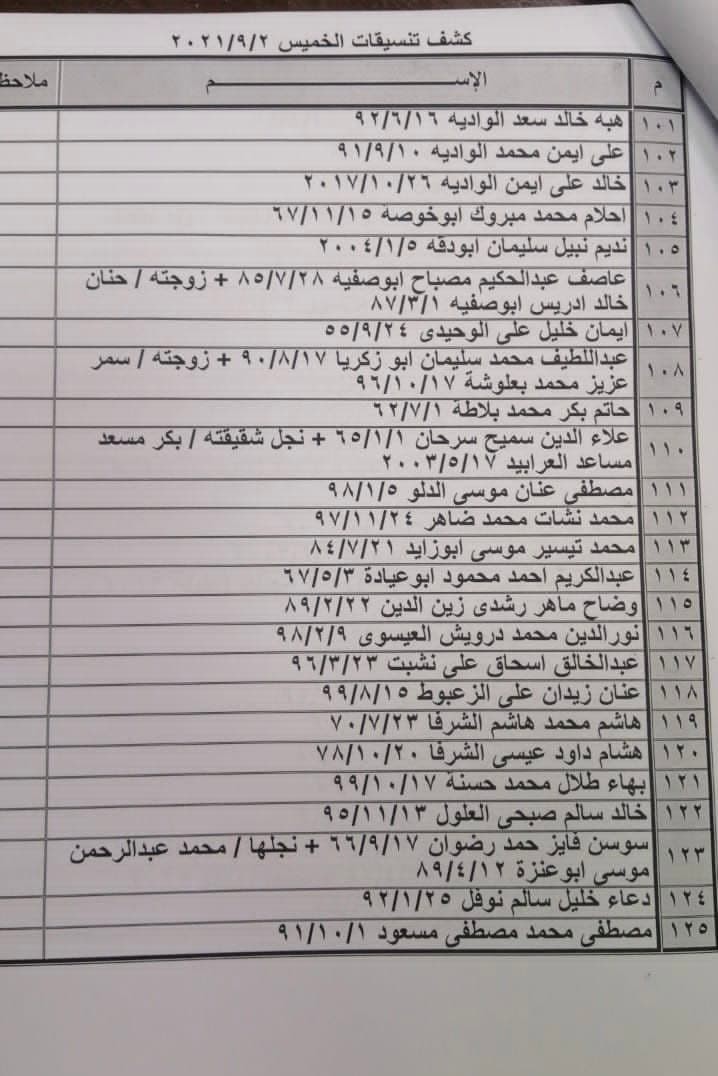 كشف تنسيقات الخميس ٢٠٢١/٩/٢
م الإســـــــــم ملاحظ
١٠١ هبه خالد سعد الواديه ٩٢/٦/١٦
١٠٢ على ايمن محمد الواديه ٩١/٩/١٠
١٠٣ خالد على ايمن الواديه ٢٠١٧/١٠/٢٦
١٠٤ احلام محمد مبروك ابوخوصة ٦٧/١١/١٥
١٠٥ نديم نبيل سليمان ابودقه ٢٠٠٤/١/٥
١٠٦ عاصف عبدالحكيم مصباح ابوصفيه ٨٥/٧/٢٨ + زوجته / حنان
خالد ادريس ابوصفيه ٨٧/٣/١
١٠٧ ايمان خليل على الوحيدى ٥٥/٩/٢٤
١٠٨ عبداللطيف محمد سليمان ابو زكريا ٩٠/٨/١٧ + زوجته / سمر
عزيز محمد بعلوشة ٩٦/١٠/١٧
١٠٩ حاتم بكر محمد بلاطة ٦٢/٧/١
١١٠ علاء الدين سميح سرحان ٦٥/١/١ + نجل شقيقته / بكر مسعد
مساعد العرابيد ٢٠٠٣/٥/١٧
١١١ مصطفي عنان موسى الدلو ٩٨/١/٥
١١٢ محمد نشات محمد ضاهر ٩٧/١١/٢٤
١١٣ محمد تيسير موسى ابوزايد ٨٤/٧/٢١
١١٤ عبدالكريم احمد محمود ابوعيادة ٦٧/٥/٣
١١٥ وضاح ماهر رشدى زين الدين ٨٩/٢/٢٢
١١٦ نورالدين محمد درويش العيسوى ٩٨/٢/٩
١١٧ عبدالخالق اسحاق على نشبت ٩٦/٣/٢٣
١١٨ عنان زيدان على الزعبوط ٩٩/٨/١٥
١١٩ هاشم محمد هاشم الشرفا ٧٠/٧/٢٣
١٢٠ هشام داود عيسى الشرفا ٧٨/١٠/٢٠
١٢١ بهاء طلال محمد حسنة ٩٩/١٠/١٧
١٢٢ خالد سالم صبحى العلول ٩٥/١١/١٣
١٢٣ سوسن فايز حمد رضوان ٦٦/٩/١٧ + نجلها / محمد عبدالرحمن
موسى ابوعنزة ٨٩/٤/١٢
١٢٤ دعاء خليل سالم نوفل ٩٢/١/٢٥
١٢٥ مصطفى محمد مصطفى مسعود ٩١/١٠/١